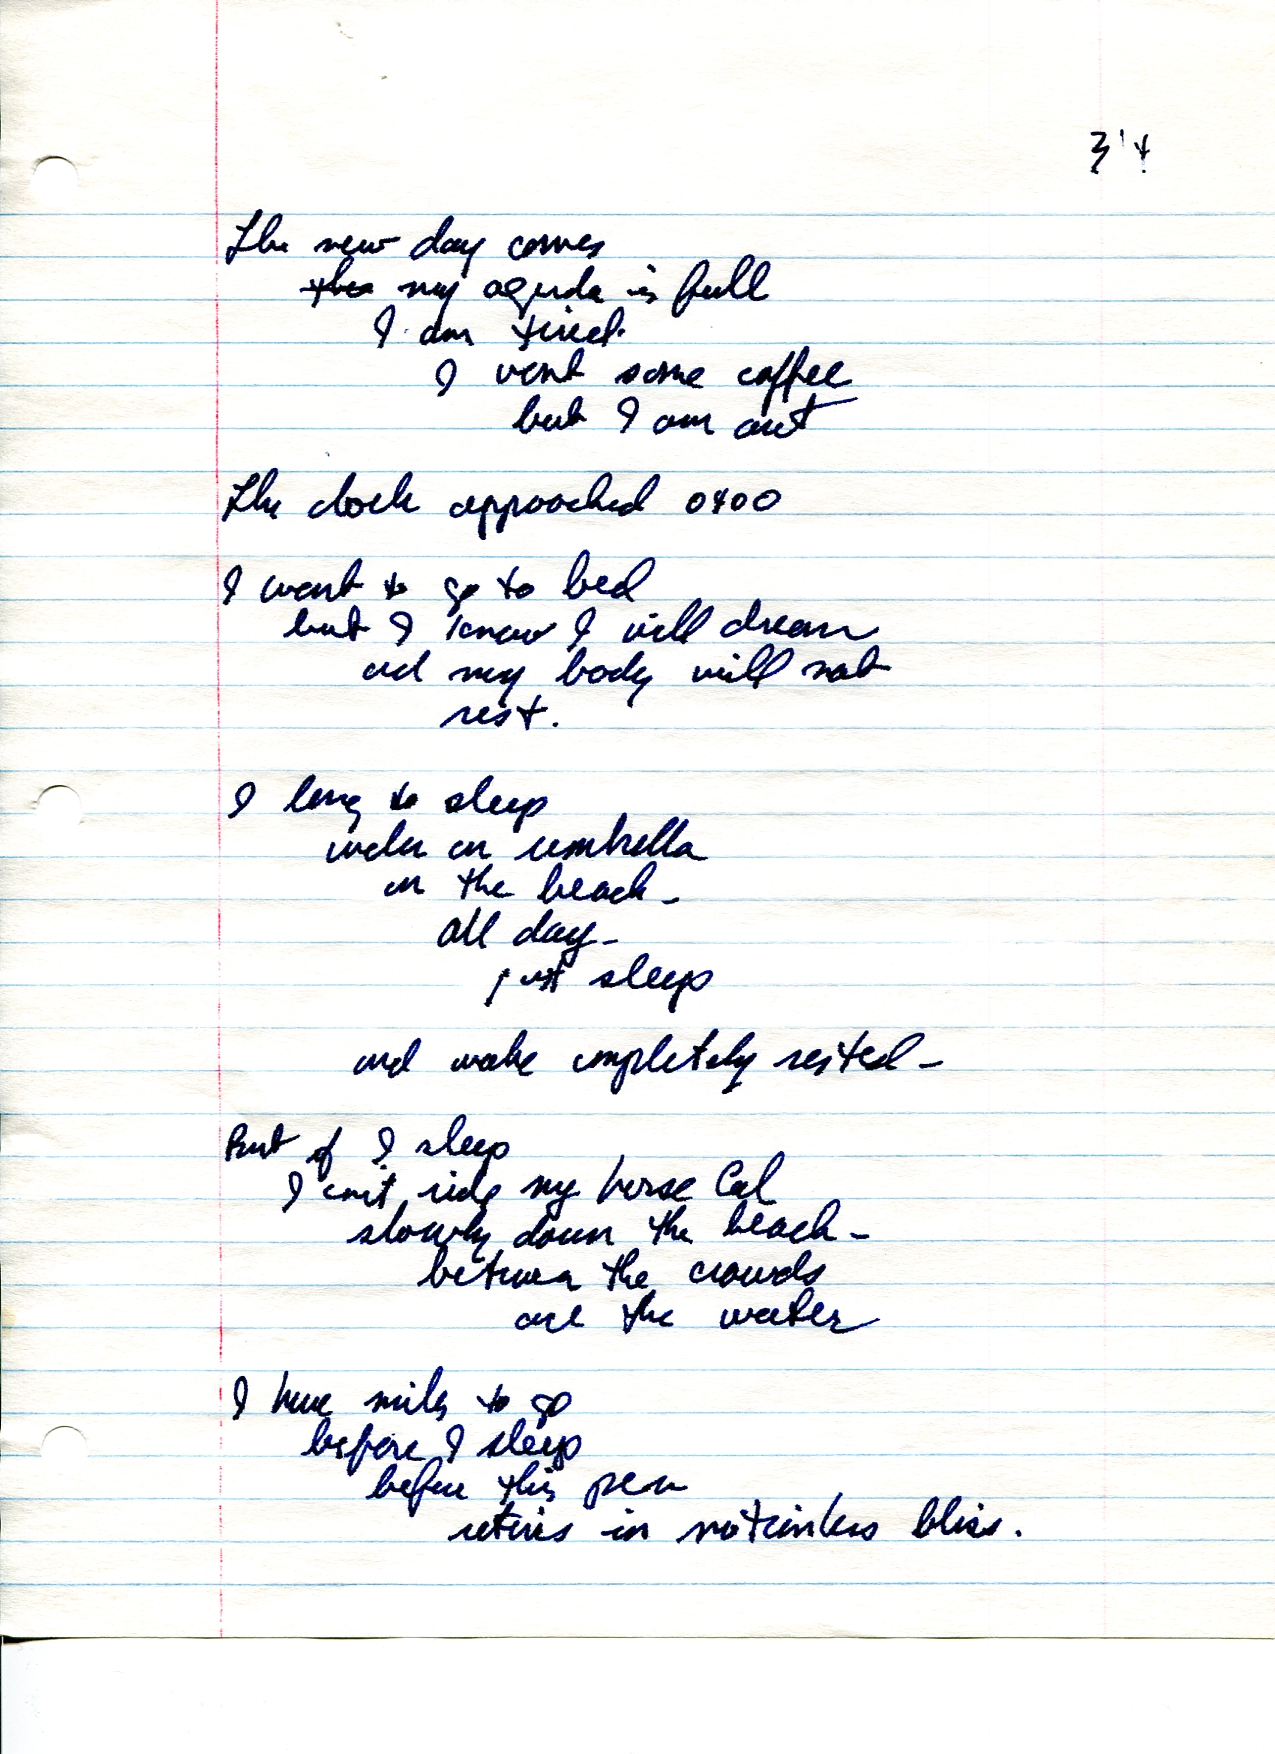 The new day comes
my agenda is full
I am tired.
I want some coffee
but I am out
The clock approached 0400
I want to go to bed
but I know I will dream
and my body will not
rest.
I long to sleep
under an umbrella
on the beach -
all day -
just sleep
and wake completely rested -
But if I sleep
I can't ride my horse Cal
slowly down the beach -
between the crowds
and the water
I have miles to go
before I sleep
before this pen
retires in bliss.